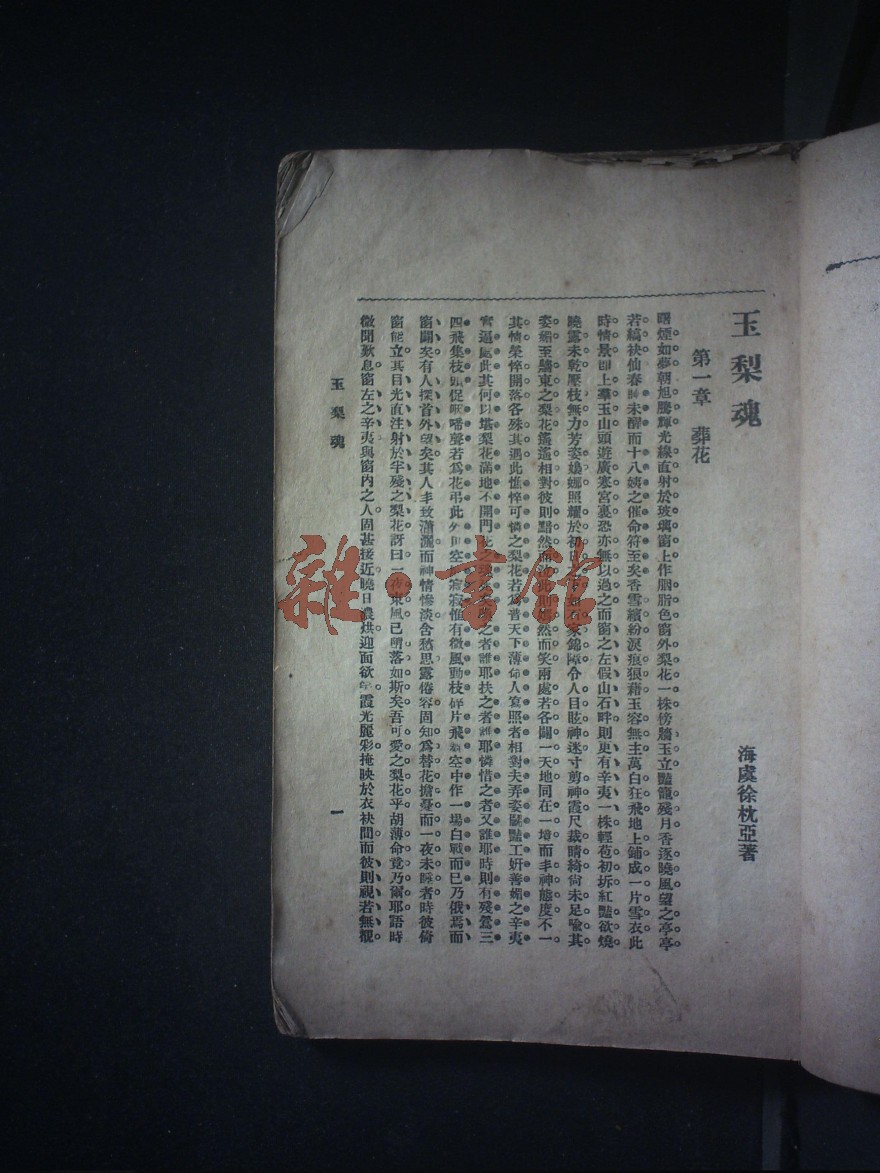 玉梨魂
海虞徐枕亞著
第一章 葬花
曙煙如夢朝旭騰輝光線直射於玻璃窗上作胭脂色窗外梨花一株傍牆玉立豔籠殘月香逐曉風望之亭亭
若縞袂仙春睡未醒而十八姨之催命符至矣香雪繽紛淚痕狼藉玉容無主萬白狂飛地上鋪成一片雪衣此
時情景即上羣玉山頭遊廣寒宮裏恐亦無以過之而窗之左假山石畔則更有辛夷一株輕苞初坼紅豔欲燒
曉露未乾壓枝無力芳姿嬝娜照耀於初日之下如石家錦障令人目眩神迷寸剪神霞尺裁晴綺尙未足喩其
姿媚至牆東之梨花遙遙相對彼則黯然而泣此則嫣然而笑兩處若各闢一天地同在一境而丰神態度不一
其情榮悴開落各殊其遇此憔悴可憐之梨花若爲普天下薄命人寫照者相對夫弄姿鬭豔工妍善媚之辛夷
實逼處此其何以堪梨花滿地不開門花之魂死矣喚之者誰耶扶之者誰耶憐惜之者又誰耶時則有殘鶯三
四飛集枝頭促眠噆聲若爲花弔此外則空庭寂寂惟有微風動枝碎片飛舞空中作一場白戰而已乃俄焉而
窗闢矣有人探首外望矣其人丰致瀟灑而神情慘淡含愁思露倦容固知爲替花擔憂而一夜未睡者時彼倚
窗而立其目光直注射於半殘之梨花訝曰一夜東風已零落如斯矣吾可愛之梨花乎胡薄命竟乃爾耶語時
微聞歎息窗左之辛夷與窗內之人固甚接近曉日濃烘迎面欲笑霞光麗彩掩映於衣袂間而彼則視若無覩
玉梨魂
一
雜·書館